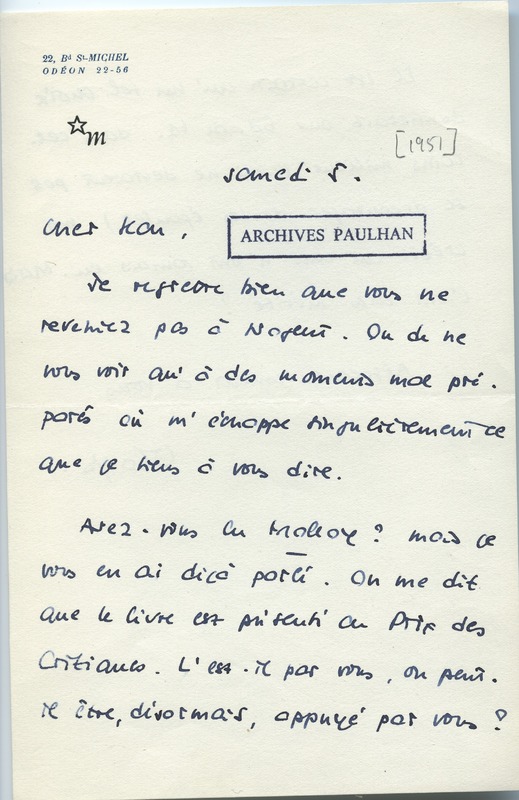 22, Bd St-MICHEL
ODÉON 22-56
m
[1951]
samedi 5.
Cher Jean,
ARCHIVES PAULHAN
Je regrette bien que vous ne
reveniez pas à Nogent. Ou de ne
vous voir qu'à des moments mal pré-
parés où m'échappe singulièrement ce
que je tiens à vous dire.
Avez-vous lu Molloy ? mais je
vous en ai déjà parlé. On me dit
que le livre est présenté au Prix des
Critiques. L'est-il par vous, ou peut-
il être, désormais, appuyé par vous ?